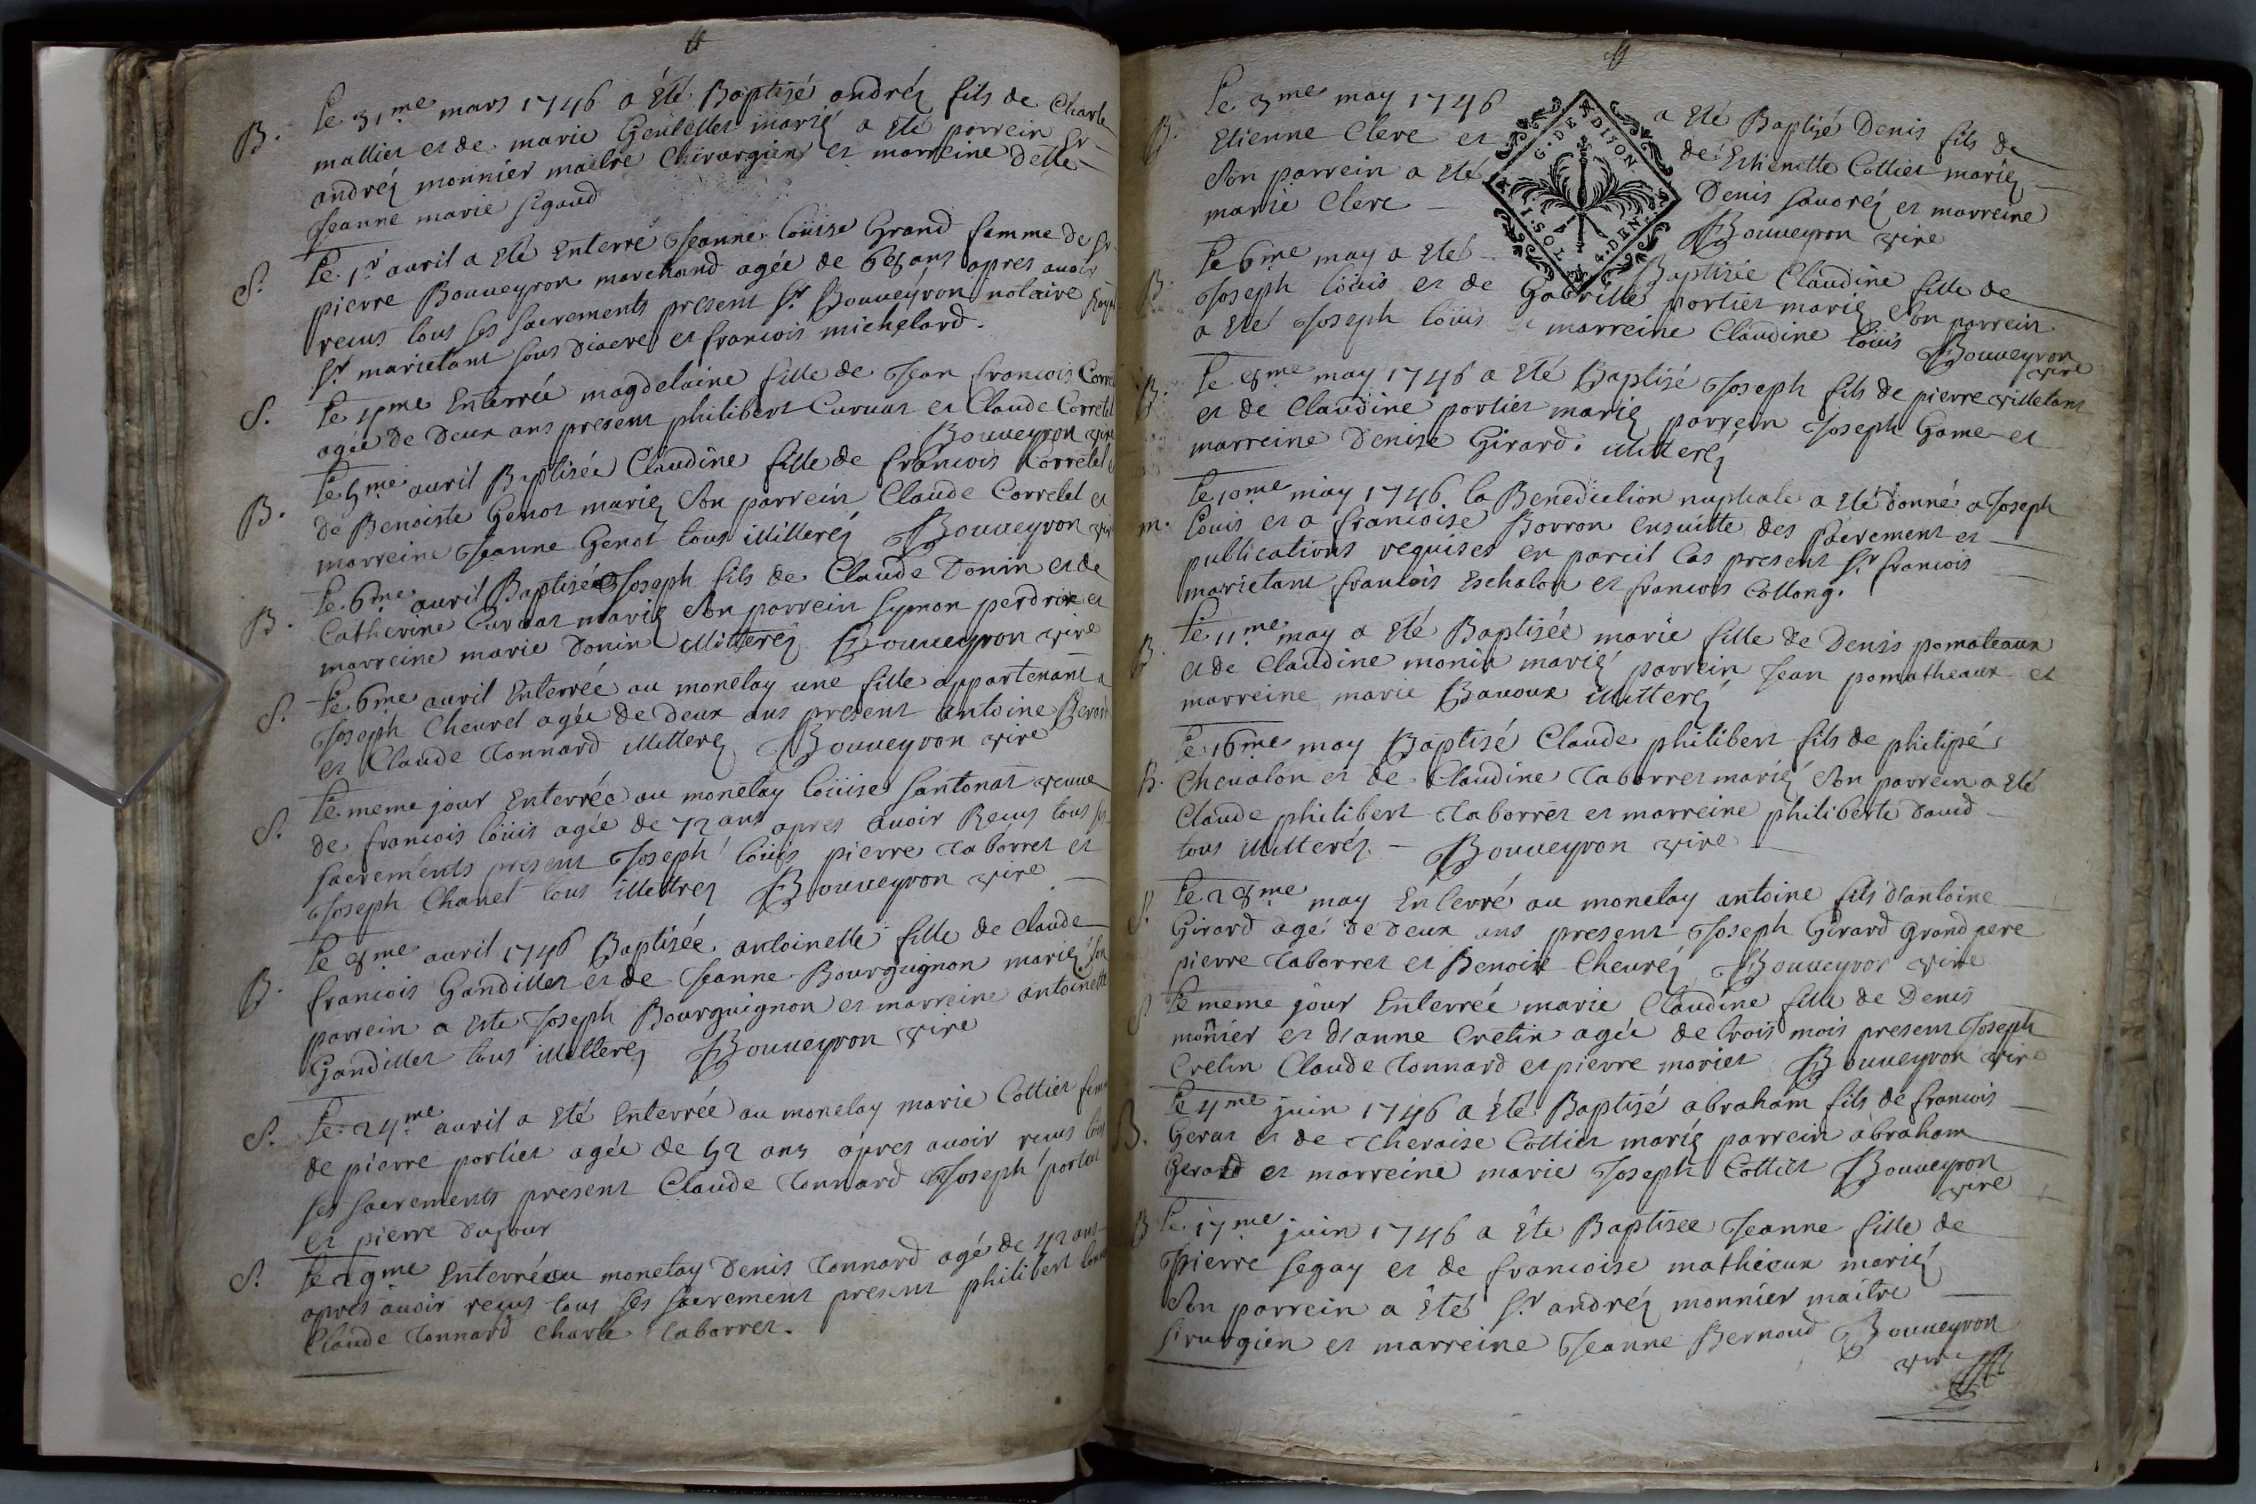 B. Le 31.me mars 1746 a été Baptisé andréz fils de Charle
mallier et de marie marié a été parrein Sr
andréz monnier maitre Chirurgien et marreine Delle
Jeanne marie sigaud
S. Le 1.r avril a été Enterré Jeanne loüise Grand femme de Sr
pierre Bouueyron marchand agée de ans apres auoir
recus tous ses sacrements present Sr Bouueyron notaire
Sr marietant sous diacre et francois michelard.
S. Le 4me Enterrée magdelaine fille de Jean francois
agée de Deux ans present philibert Curuat et Claude
Bouueyron vire
B. Le 5me auril Baptisée Claudine fille de francois
De Benoiste Genot mariéz Son parrein Claude Corretel et
marreine Jeanne Genot tous illiteréz Bouueyron vire
B. Le 6me auril Baptisé Joseph fils de Claude Donin et de
Catherine Curuat mariéz Son parrein symon perdrix et
marreine marie Donin illiteréz Bouueyron vire
S. Le 6me auril Enterrée au monetay une fille appartenant a
Joseph Cheuret agée de Deux ans present antoine
et Claude Tonnard illitteréz Bouueyron vire
S. Le meme jour Enterrée au monetay loüise santonat veuue
de francois loüis agée de 72 ans apres auoir Recus tous ses
sacrements present Joseph loüis pierre Taborret et
Joseph Chanet tous illettréz Bouueyron vire
B. Le 8me auril 1746 Baptisée antoinette fille de Claude
francois Gandillet et de Jeanne Bourguignon mariéz Son
parrein a été Joseph Bourguignon et marreine antoinette
Gandillet tous illiteréz Bouueyron vire
S. Le 24me auril a été Enterrée au monetay marie Cottier
de pierre portier agée de 52 ans apres auoir recus
ses sacrements present Claude Tonnard Joseph
et pierre Dufour
S. Le 29me Enterré au monetay Denis Tonnard agé de 42 ans
apres auoir recus tous ses sacrement present philibert
Claude Tonnard Charle Taborret.
B. Le 3me may 1746 a été Baptisé Denis fils de
Etienne Clere et de Etienette Cottier mariéz
Son parrein a été Denis sauoréz et marreine
marie Clere Bouueyron vire
G. DE DIJON
4. DEN.
B. Le 6me may a été Baptisée Claudine fille de
Joseph loüis et de Gabrille portier mariéz Son parrein
a été Joseph loüis marreine Claudine loüis Bouueyron
vire
B. Le 8me may 1746 a été Baptisé Joseph fils de pierre villetant
et de Claudine portier mariéz parrein Joseph Game et
marreine Denise Girard. illiteréz
m. Le 10me may 1746 la Benediction nuptiale a été donné a Joseph
Louis et a francoise Borron ensuitte des sacrement et
publications requises en pareil Cas present Sr francois
marietant francois Eschalon et francois Collong.
B. Le 11me may a été Baptisée marie fille de Denis pomateaux
et de Claudine monin mariéz parrein Jean pomatheaux et
marreine marie Bauoux illitteréz
B. Le 16me may Baptisé Claude philibert fils de philipe
Cheualon et de Claudine Taborret mariéz Son parrein a été
Claude philibert Taborret et marreine philiberte Dauid
tous illitteréz. Bouueyron vire
S. Le 28me may Enterré au monetay antoine fils d'antoine
Girard agé de Deux ans present Joseph Girard Grand pere
pierre Taborret et Benoit Cheuréz Bouueyron vire
S. Le meme jour Enterrée marie Claudine fille de Denis
monier et d'anne Cretin agée de trois mois present Joseph
Cretin Claude Tonnard et pierre moriet Bouueyron vire
B. Le 4me juin 1746 a été Baptisé abraham fils de francois
Gerar et de Theraise Cottier mariéz parrein abraham
Gerard et marreine marie Joseph Cottier Bouueyron
vire
B Le 17me juin 1746 a été Baptisée Jeanne fille de
pierre segay et de francoise matheoux mariéz
Son parrein a été Sr andréz monnier maitre
sirurgien et marreine Jeanne Bernoud Bouueyron
vire